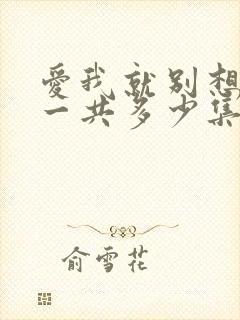 愛我就别想
一共多少集
俞雪花